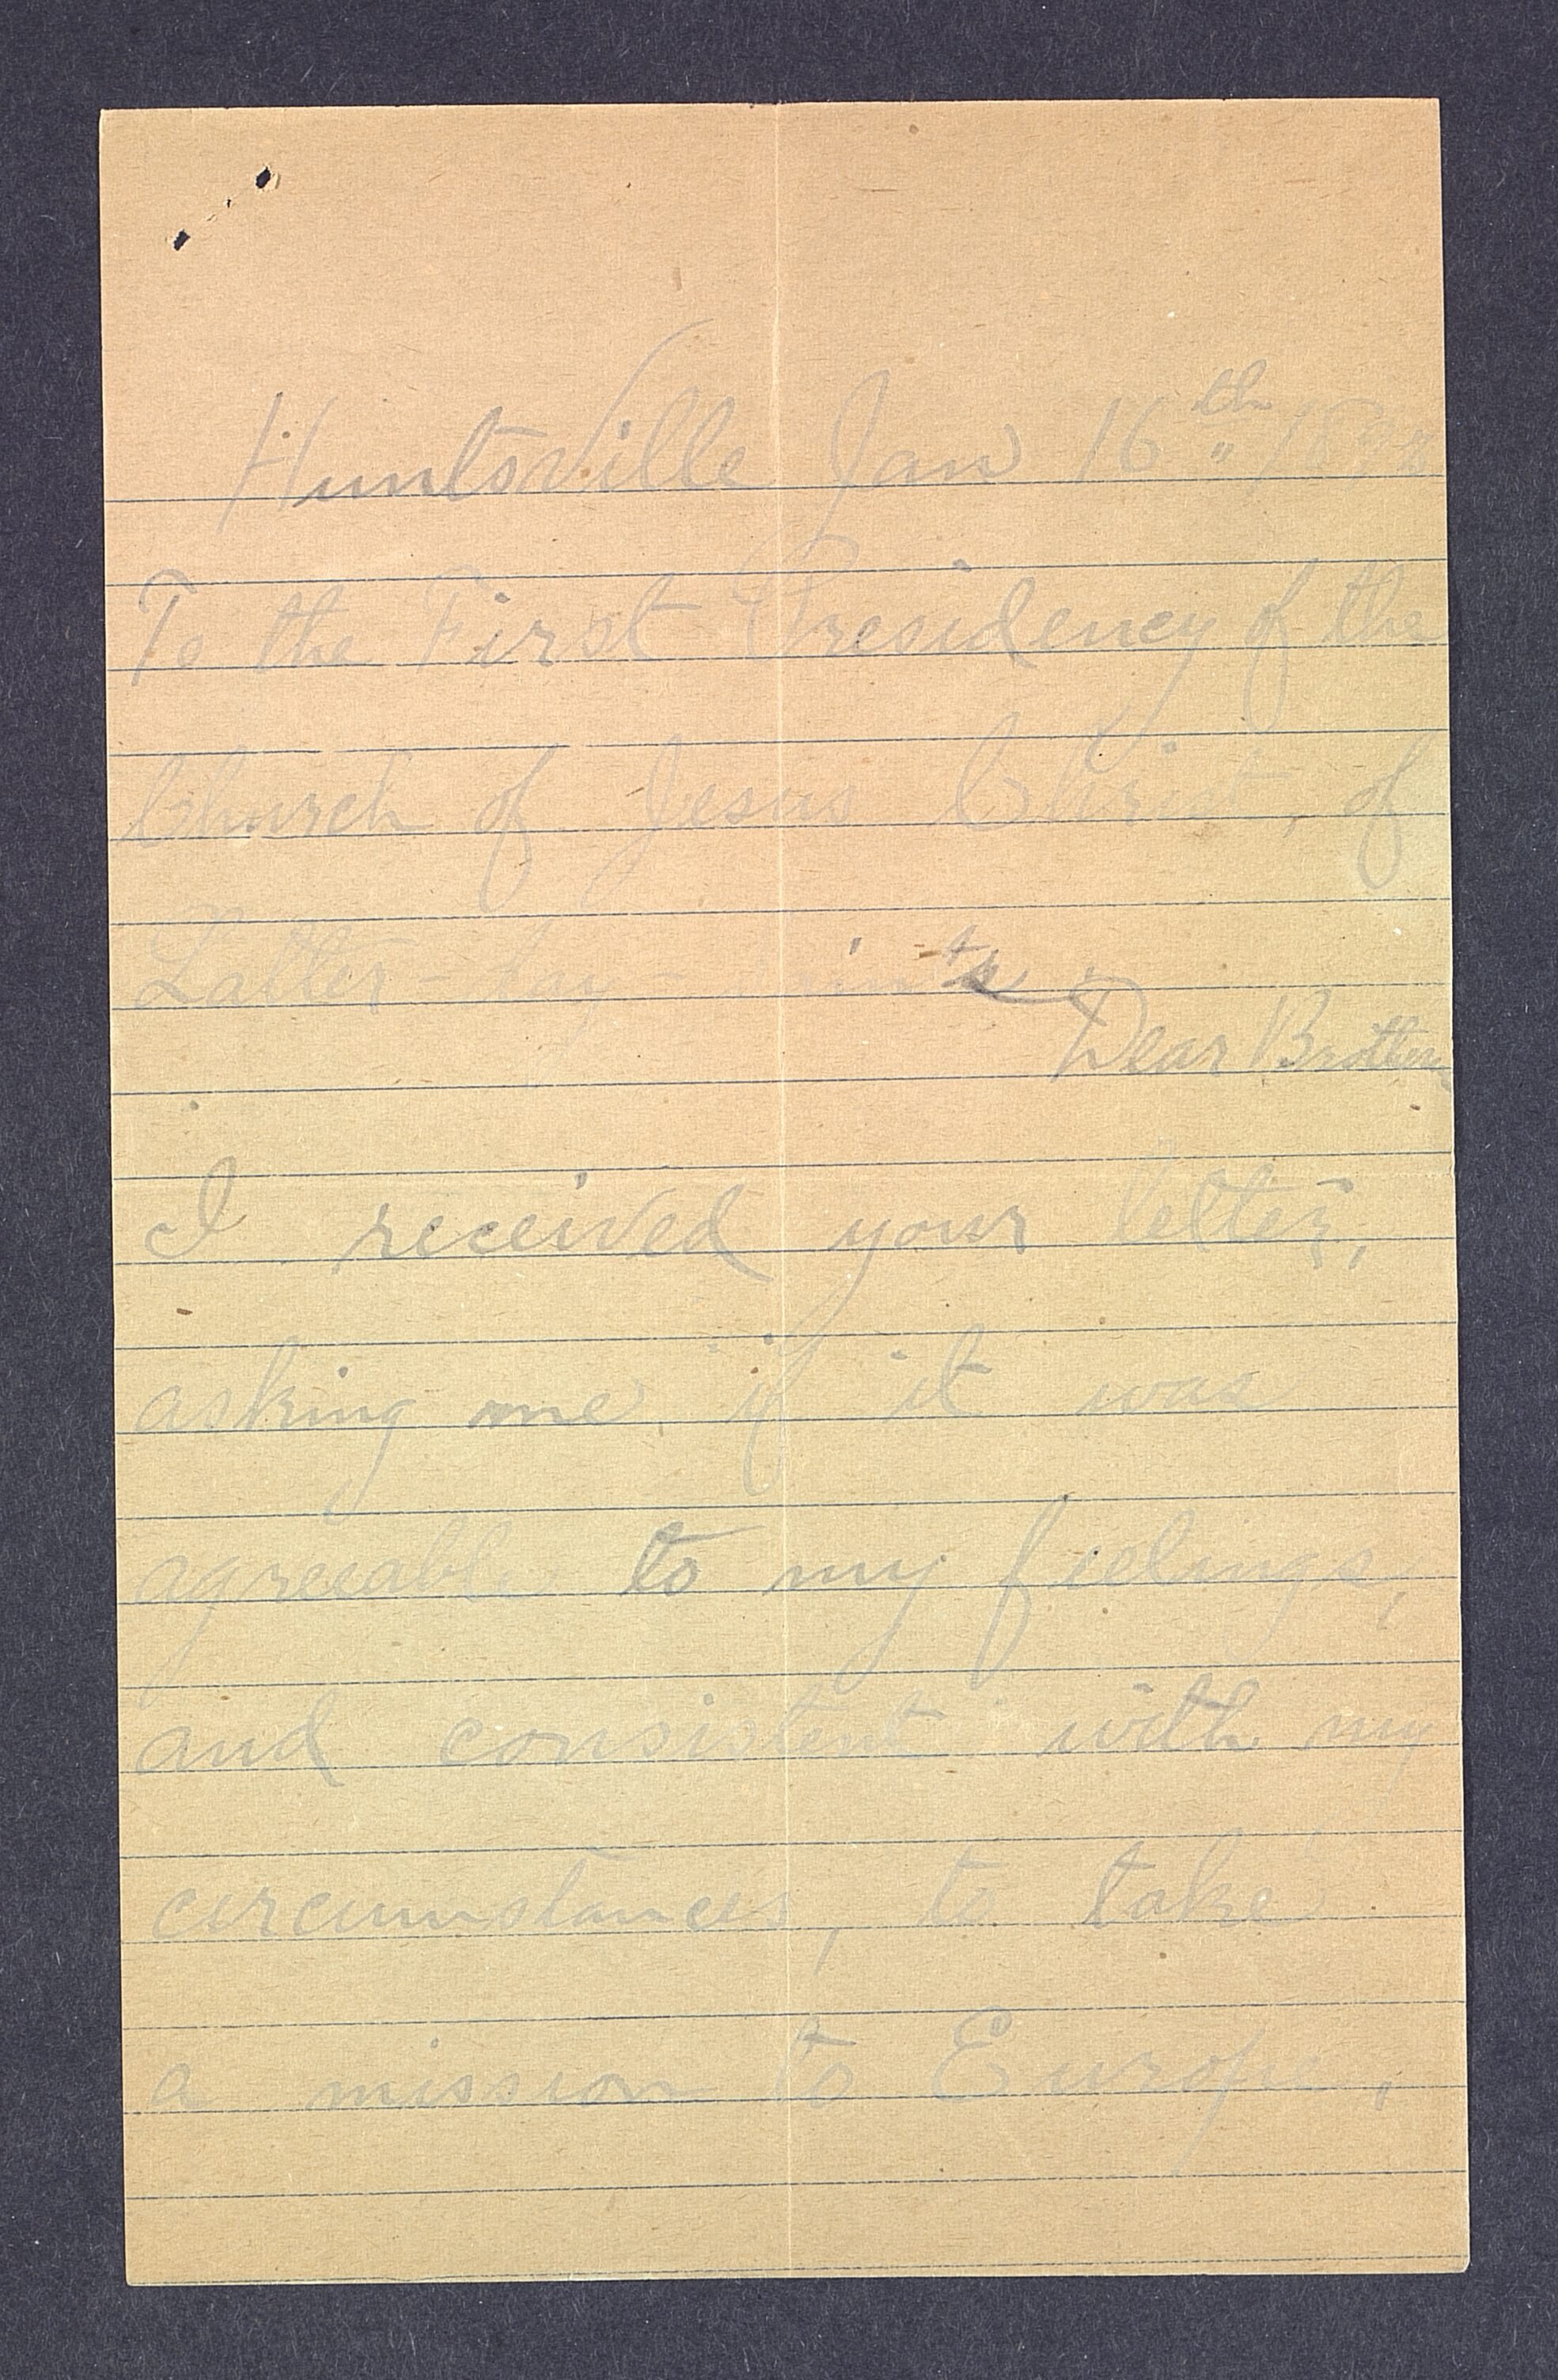 Huntsville Jan 16th
To the First Presidency of the
Church of Jesus Christ, of
Latter-day-Saints
Dear Brethren
I received your letter,
asking me if it was
agreeable to my feelings,
and consistent with my
circumstances, to take
a mission to Europe,